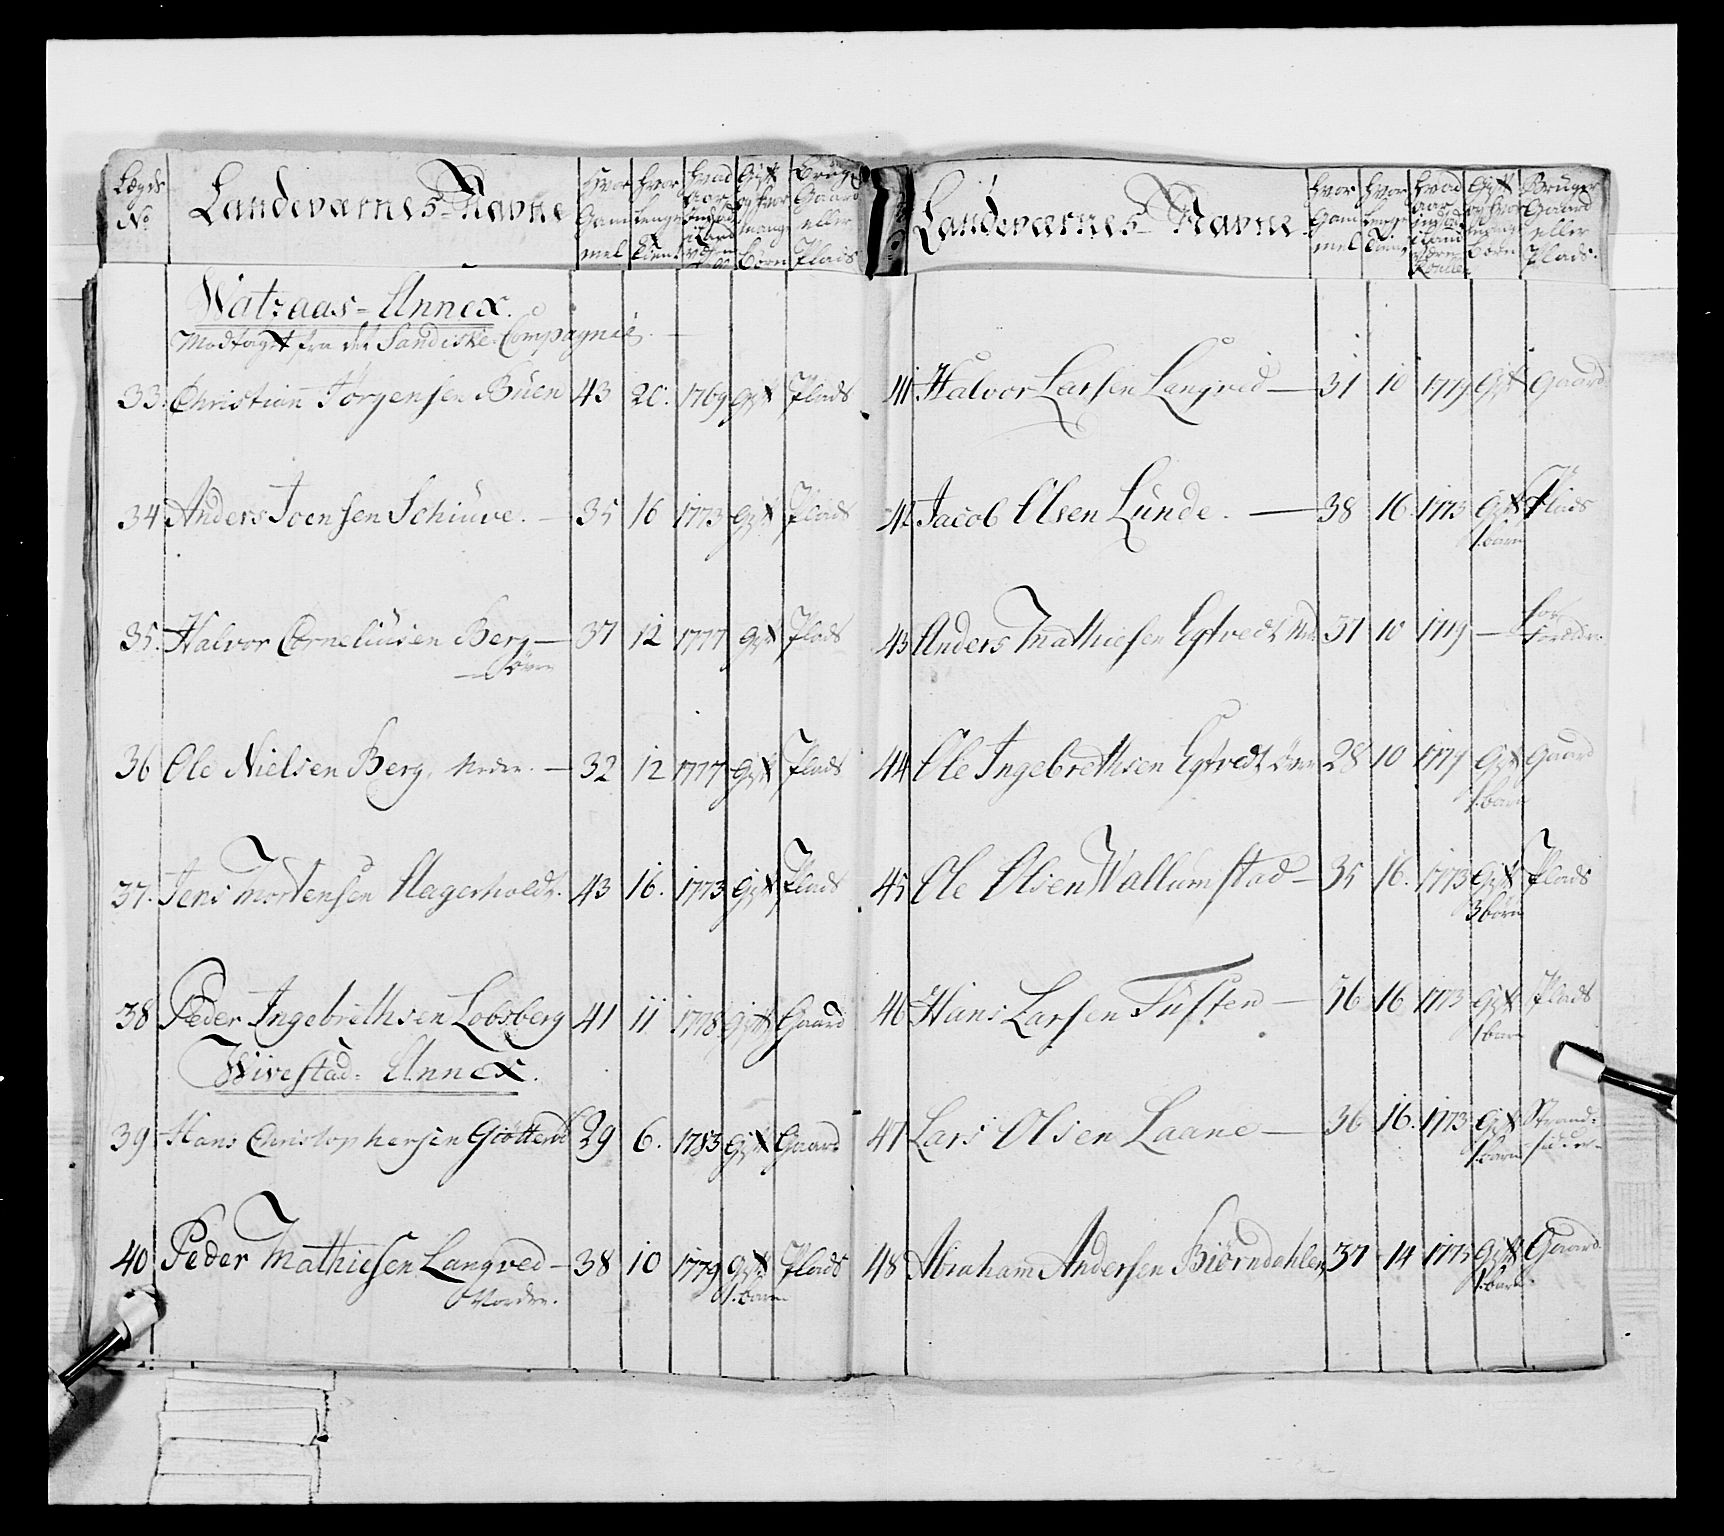 Lægds No | Landeværnes Navne | Hvor Gammel | Hvor længe Tient | Hvad Aar indtraad i Land | Gift og hvor mange Børn | Bruger Gaard eller Plads
Watraas = Annex.
Modtaget fra det Sandiske Compagnie.
33. Christian Jorgensen Buen 43 20. 1769 Gift Plads
34 Anders Joensen Schiuve. — 35 16 1773 Gift Plads
35. Halvor Corneliusen Berg — 37 12 1777 Gift Plads
36 Ole Nielsen Berg, Nedre. — 32 12 1777 Gift Plads
37. Jens Mortensen Hagerholdt. 43 16. 1773 Gift Plads
38 Peder Ingebrethsen Lobsberg 41 11 1778 Gift Gaard
Wivestad = Annex.
39 Hans Christophersen 29 6. 1783 Gift Gaard
40 Peder Mathiesen Langved — 38 10 1779 Gift Plads
Nordre. 1. barn
Landeværnes Navne | Hvor Gammel | Hvor længe Tient | Hvad Aar | Gift og hvor mange Børn | Bruger Gaard eller Plads.
41 Halvor Larsen Langved — 31 10 1779 Gift Gaard
42 Jacob Olsen Lunde. — 38 16. 1773 Gift Plads
1. barn
43 Anders Mathiesen 37 10 1779 —
44 Ole Ingebrethsen 28 10 1779 Gift Gaard
1. barn
45 Ole Olsen Wallumstad — 35 16. 1773 Gift Plads
3 børn
46 Hans Larsen Fusten — 36 16 1773 Gift Plads
1 barn
47 Lars Olsen Laane — 36 16. 1773 Gift Strand=
1. barn sidder
48 Abraham Andersen Biörndahlen 37 14 1775 Gift Gaard
1. barn